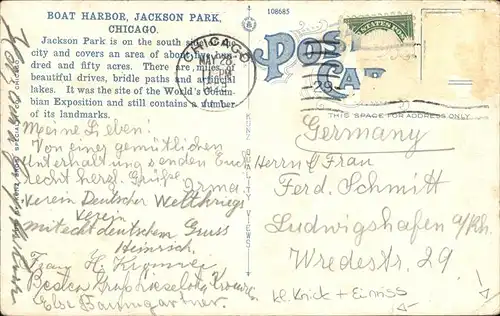 BOAT HARBOR, JACKSON PARK,
CHICAGO.
108685
Jackson Park is on the south side of the
city and covers an area of about five hun-
dred and fifty acres. There are miles of
beautiful drives, bridle paths and artificial
lakes. It was the site of the World's Colum-
bian Exposition and still contains a number
of its landmarks.
CHICAGO
MAY 28
PM
POST
CARD
THIS SPACE FOR ADDRESS ONLY
Meine Lieben!
Von einer gemütlichen
Unterhaltung senden Euch
recht herzl. Grüße
Irma.
Verein Deutscher Weltkriegs
Verein
mit echt deutschem Gruss
Heinrich.
Franz H.
Besten Gruß Lieselotte
Else Baumgartner.
Germany
Herrn u. Frau
Ferd. Schmitt
Ludwigshafen a/Rh.
Wredestr. 29
kl. Knick + Einriss